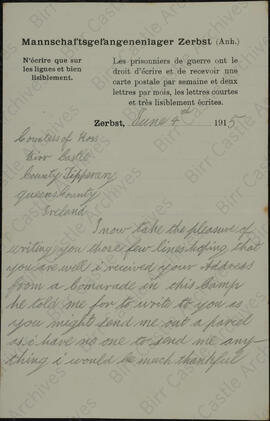 Mannschaftsgefangenenlager Zerbst (Anh.)
N'écrire que sur
les lignes et bien
lisiblement.
Les prisonniers de guerre ont le
droit d'écrire et de recevoir une
carte postale par semaine et deux
lettres par mois, les lettres courtes
et très lisiblement écrites.
Zerbst, June 4th 1915
Countess of Ross
Birr Castle
County Tipperary
Queens County
Ireland
I now take the pleasure of
writing you those few lines hoping that
you are well i received your Address
from a Comarade in this Camp
he told me for to write to you as
you might send me out a parcel
as i have no one to send me any
thing i would be much thankful
Birr Castle Archives